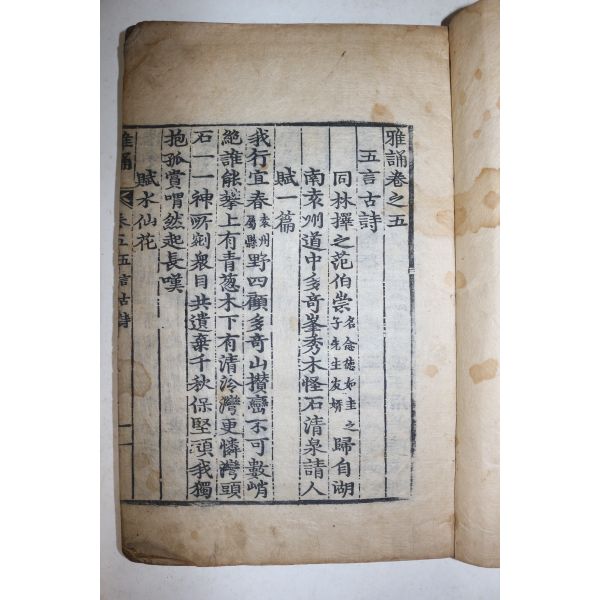 雅誦卷之五
五言古詩
同林擇之范伯崇名念德如圭之子先生友婿歸自湖
南袁州道中多奇峯秀木怪石清泉請人
賦一篇
我行宜春袁州屬縣野四顧多奇山攢巒不可數峭
絶誰能攀上有青葱木下有清泠灣更憐灣頭
石一一神所剜衆目共遺棄千秋保堅頑我獨
抱孤賞喟然起長嘆
賦水仙花
雅誦 卷五 五言古詩